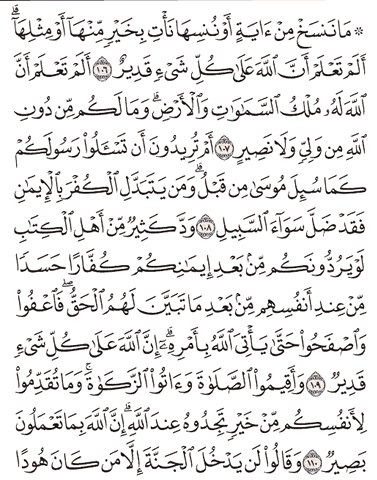 ۞ مَا نَنسَخْ مِنْ ءَايَةٍ أَوْ نُنسِهَا نَأْتِ بِخَيْرٍ مِّنْهَآ أَوْ مِثْلِهَآ ۗ
أَلَمْ تَعْلَمْ أَنَّ ٱللَّهَ عَلَىٰ كُلِّ شَىْءٍ قَدِيرٌ ١٠٦ أَلَمْ تَعْلَمْ أَنَّ
ٱللَّهَ لَهُۥ مُلْكُ ٱلسَّمَـٰوَٰتِ وَٱلْأَرْضِ ۗ وَمَا لَكُم مِّن دُونِ
ٱللَّهِ مِن وَلِىٍّ وَلَا نَصِيرٍ ١٠٧ أَمْ تُرِيدُونَ أَن تَسْـَٔلُوا۟ رَسُولَكُمْ
كَمَا سُئِلَ مُوسَىٰ مِن قَبْلُ ۗ وَمَن يَتَبَدَّلِ ٱلْكُفْرَ بِٱلْإِيمَـٰنِ
فَقَدْ ضَلَّ سَوَآءَ ٱلسَّبِيلِ ١٠٨ وَدَّ كَثِيرٌ مِّنْ أَهْلِ ٱلْكِتَـٰبِ
لَوْ يَرُدُّونَكُم مِّنۢ بَعْدِ إِيمَـٰنِكُمْ كُفَّارًا حَسَدًا
مِّنْ عِندِ أَنفُسِهِم مِّنۢ بَعْدِ مَا تَبَيَّنَ لَهُمُ ٱلْحَقُّ ۖ فَٱعْفُوا۟
وَٱصْفَحُوا۟ حَتَّىٰ يَأْتِىَ ٱللَّهُ بِأَمْرِهِۦٓ ۗ إِنَّ ٱللَّهَ عَلَىٰ كُلِّ شَىْءٍ
قَدِيرٌ ١٠٩ وَأَقِيمُوا۟ ٱلصَّلَوٰةَ وَءَاتُوا۟ ٱلزَّكَوٰةَ ۚ وَمَا تُقَدِّمُوا۟
لِأَنفُسِكُم مِّنْ خَيْرٍ تَجِدُوهُ عِندَ ٱللَّهِ ۗ إِنَّ ٱللَّهَ بِمَا تَعْمَلُونَ
بَصِيرٌ ١١٠ وَقَالُوا۟ لَن يَدْخُلَ ٱلْجَنَّةَ إِلَّا مَن كَانَ هُودًا